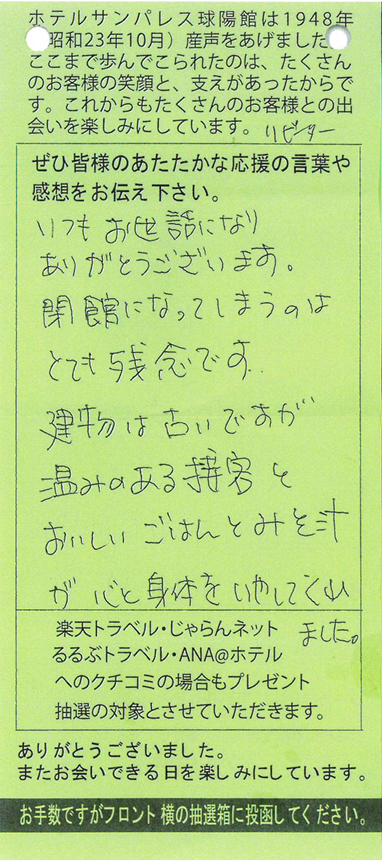 ホテルサンパレス球陽館は1948年
昭和23年10月）産声をあげました
ここまで歩んでこられたのは、たくさん
のお客様の笑顔と、支えがあったからで
す。これからもたくさんのお客様との出
会いを楽しみにしています。リピーター
ぜひ皆様のあたたかな応援の言葉や
感想をお伝え下さい。
いつもお世話になり
ありがとうございます。
閉館になってしまうのは
とても残念です.
建物は古いですが
温みのある接客と
おいしいごはんとみそ汁
が心と身体をいやしてくれ
ました。
楽天トラベル・じゃらんネット
るるぶトラベル・ANA@ホテル
へのクチコミの場合もプレゼント
抽選の対象とさせていただきます。
ありがとうございました。
またお会いできる日を楽しみにしています。
お手数ですがフロント横の抽選箱に投函してください。